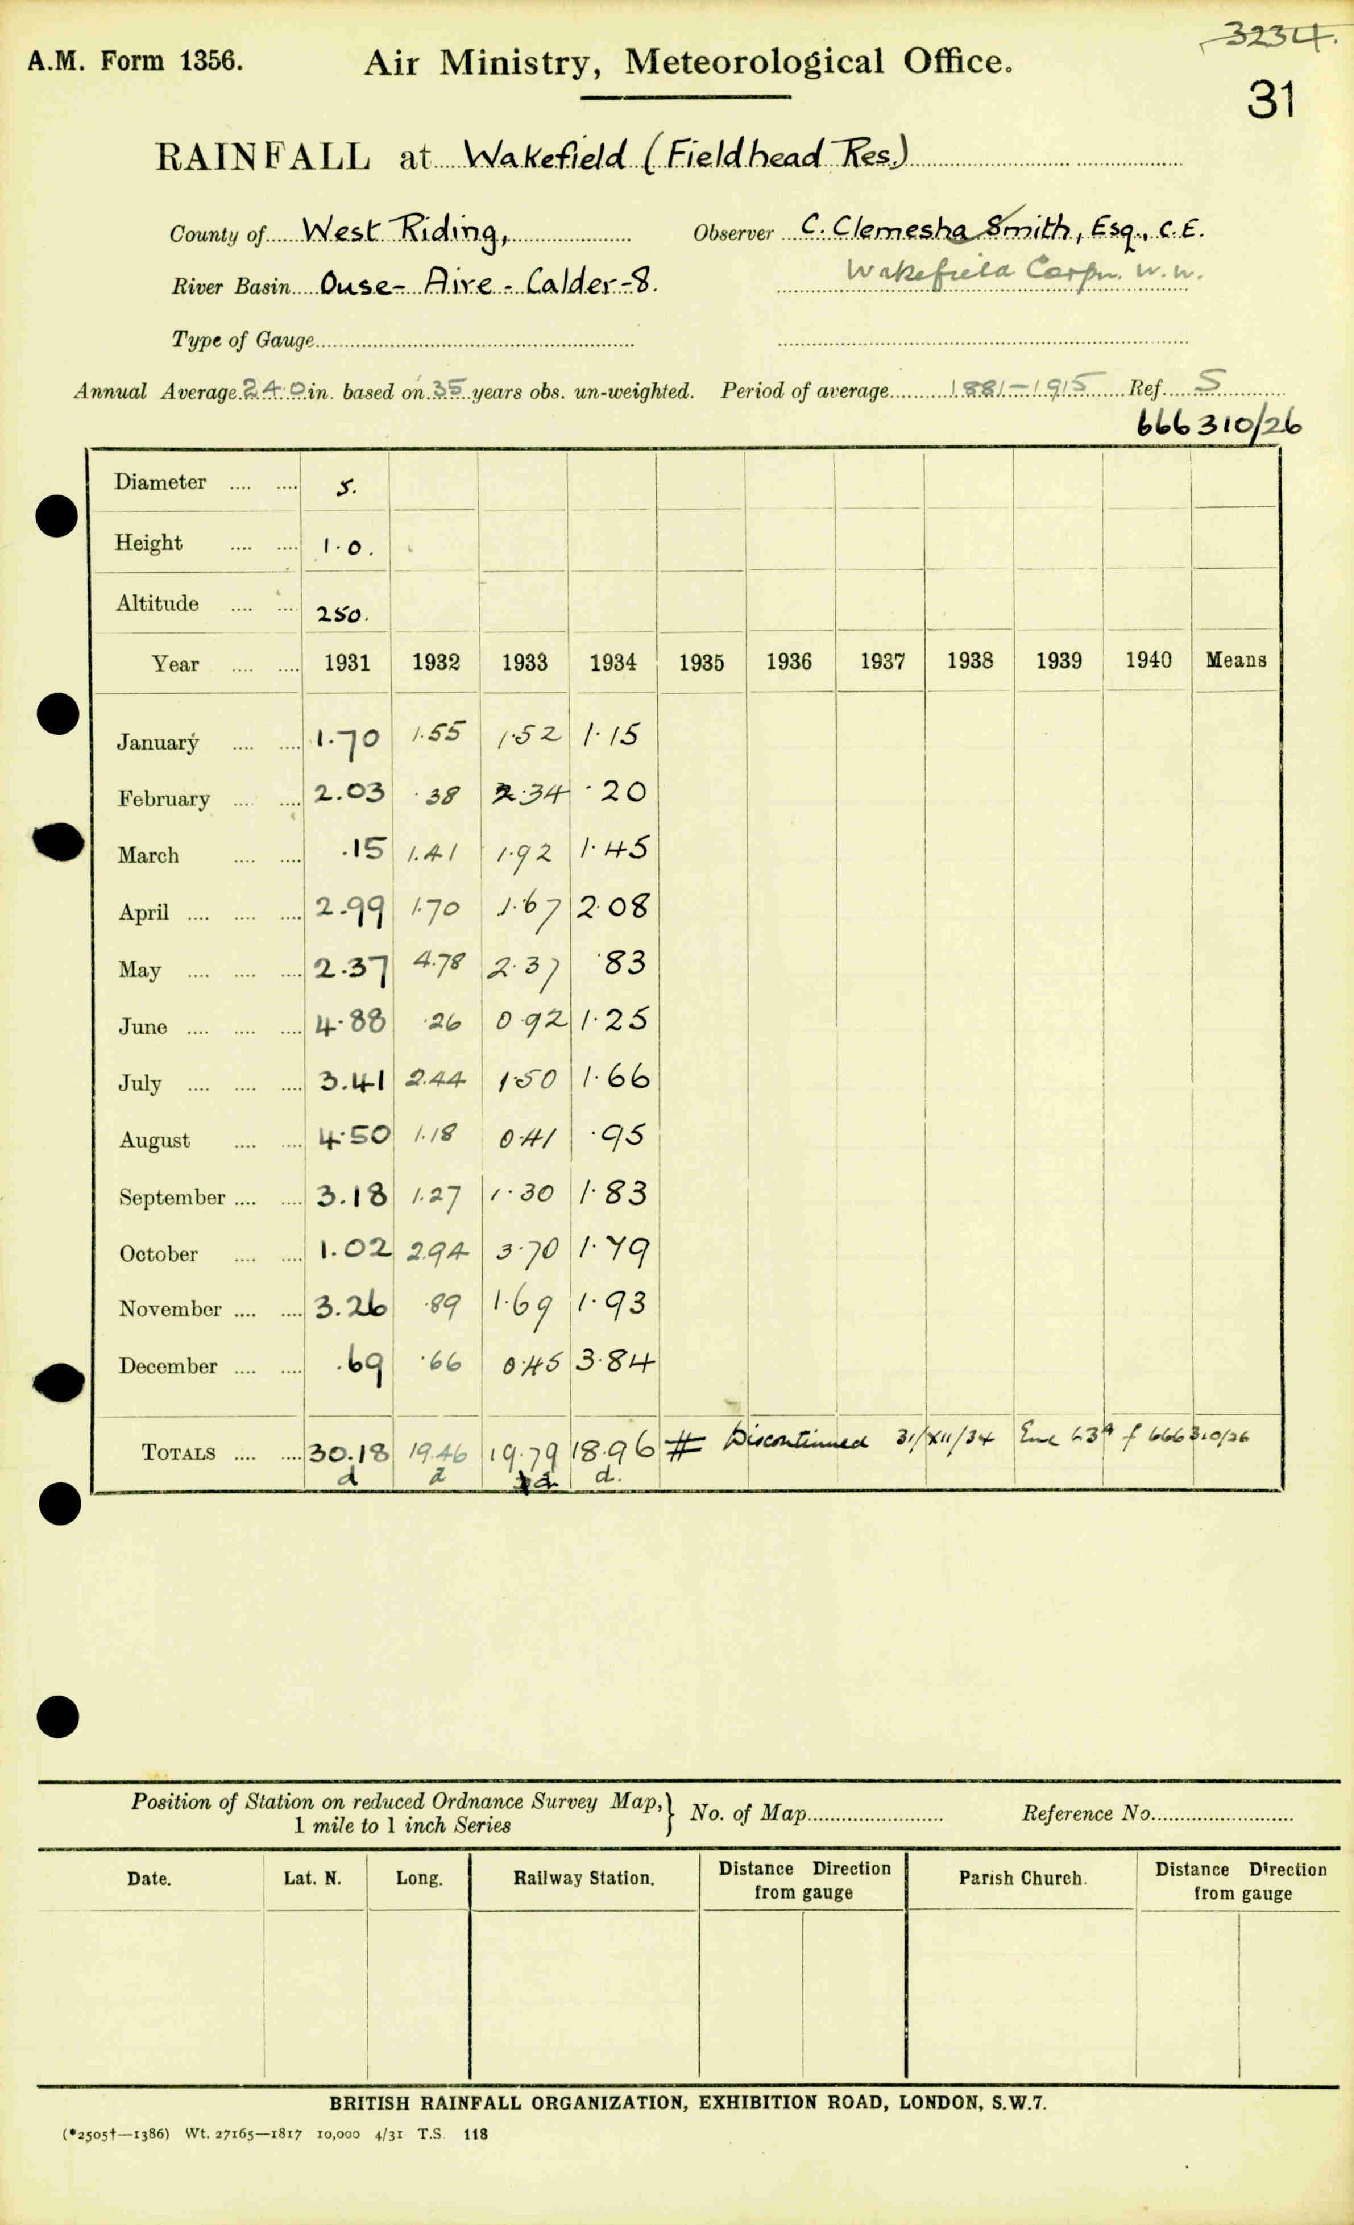 3234.
A.M. Form 1356. Air Ministry, Meteorological Office.
31
RAINFALL at Wakefield (Fieldhead Res.)
County of West Riding, Observer C. Clemesha Smith, Esq., C.E.
Wakefield Corpn. W.W.
River Basin Ouse - Aire - Calder - 8.
Type of Gauge
Annual Average 24.0 in. based on 35 years obs. un-weighted. Period of average 1881-1915 Ref. S
666310/26
Diameter .... .... 5.
Height .... .... 1.0.
Altitude .... .... 250.
Year .... .... 1931 1932 1933 1934 1935 1936 1937 1938 1939 1940 Means
January .... .... 1.70 1.55 1.52 1.15
February .... .... 2.03 .38 2.34 .20
March .... .... .15 1.41 1.92 1.45
April .... .... .... 2.99 1.70 1.67 2.08
May .... .... .... 2.37 4.78 2.37 .83
June .... .... .... 4.88 .26 0.92 1.25
July .... .... .... 3.41 2.44 1.50 1.66
August .... .... 4.50 1.18 0.41 .95
September .... .... 3.18 1.27 1.30 1.83
October .... .... 1.02 2.94 3.70 1.79
November .... .... 3.26 .89 1.69 1.93
December .... .... .69 .66 0.45 3.84
TOTALS .... .... 30.18 19.46 19.79 18.96 # Discontinued 31/XII/34 Enc 63A f 666310/26
d d d d.
Position of Station on reduced Ordnance Survey Map, } No. of Map Reference No.
1 mile to 1 inch Series
Date. Lat. N. Long. Railway Station. Distance Direction Parish Church. Distance Direction
from gauge from gauge
BRITISH RAINFALL ORGANIZATION, EXHIBITION ROAD, LONDON, S.W.7.
(*2505†—1386) Wt. 27165—1817 10,000 4/31 T.S. 118